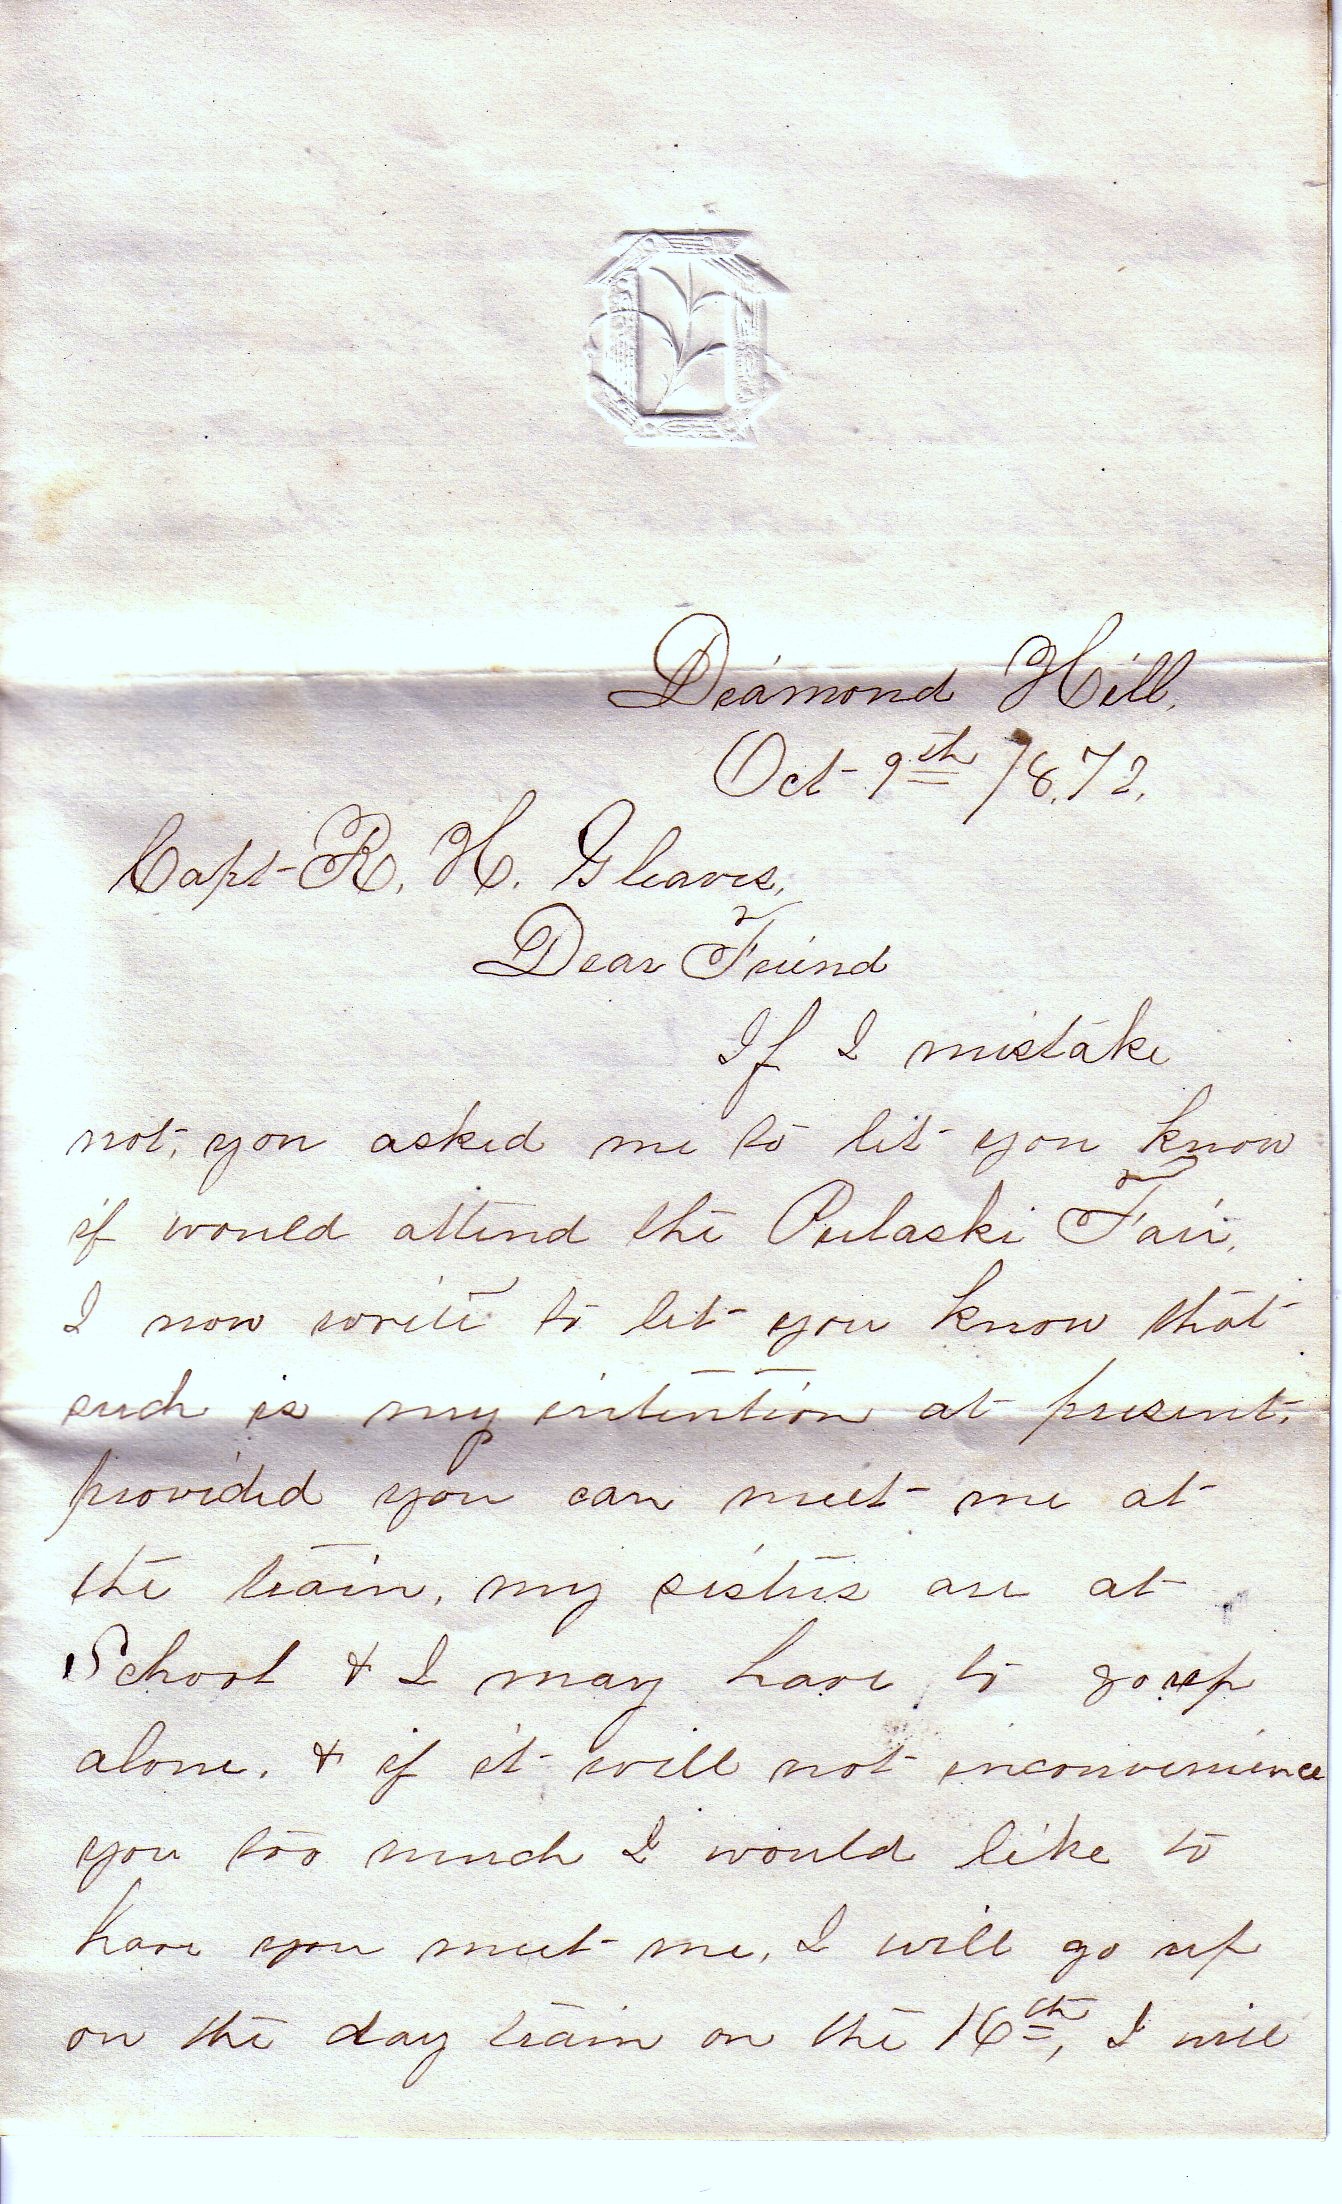 Diamond Hill,
Oct 9th /8.72.
Capt R. H. Gleaves,
Dear Friend
If I mistake
not, you asked me to let you know
if would attend the Pulaski Fair,
I now write to let you know that
such is my intention at present,
provided you can meet me at
the train, my sisters are at
School & I may have to go up
alone. & if it will not inconvenience
you too much I would like to
have you meet me, I will go up
on the day train on the 16th, I will